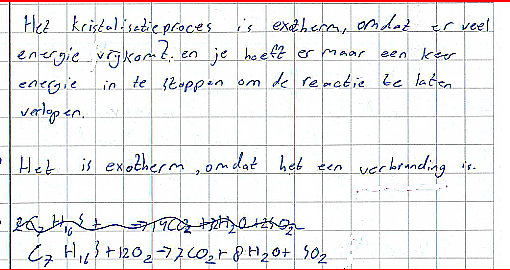 Het kristalisatieproces is exotherm, omdat er veel
energie vrijkomt. en je hoeft er maar een keer
energie in te stoppen om de reactie te laten
verlopen.
Het is exotherm, omdat het een verbranding is.
C7 H16 S + 12O2 → 7CO2 + 8H2O + SO2